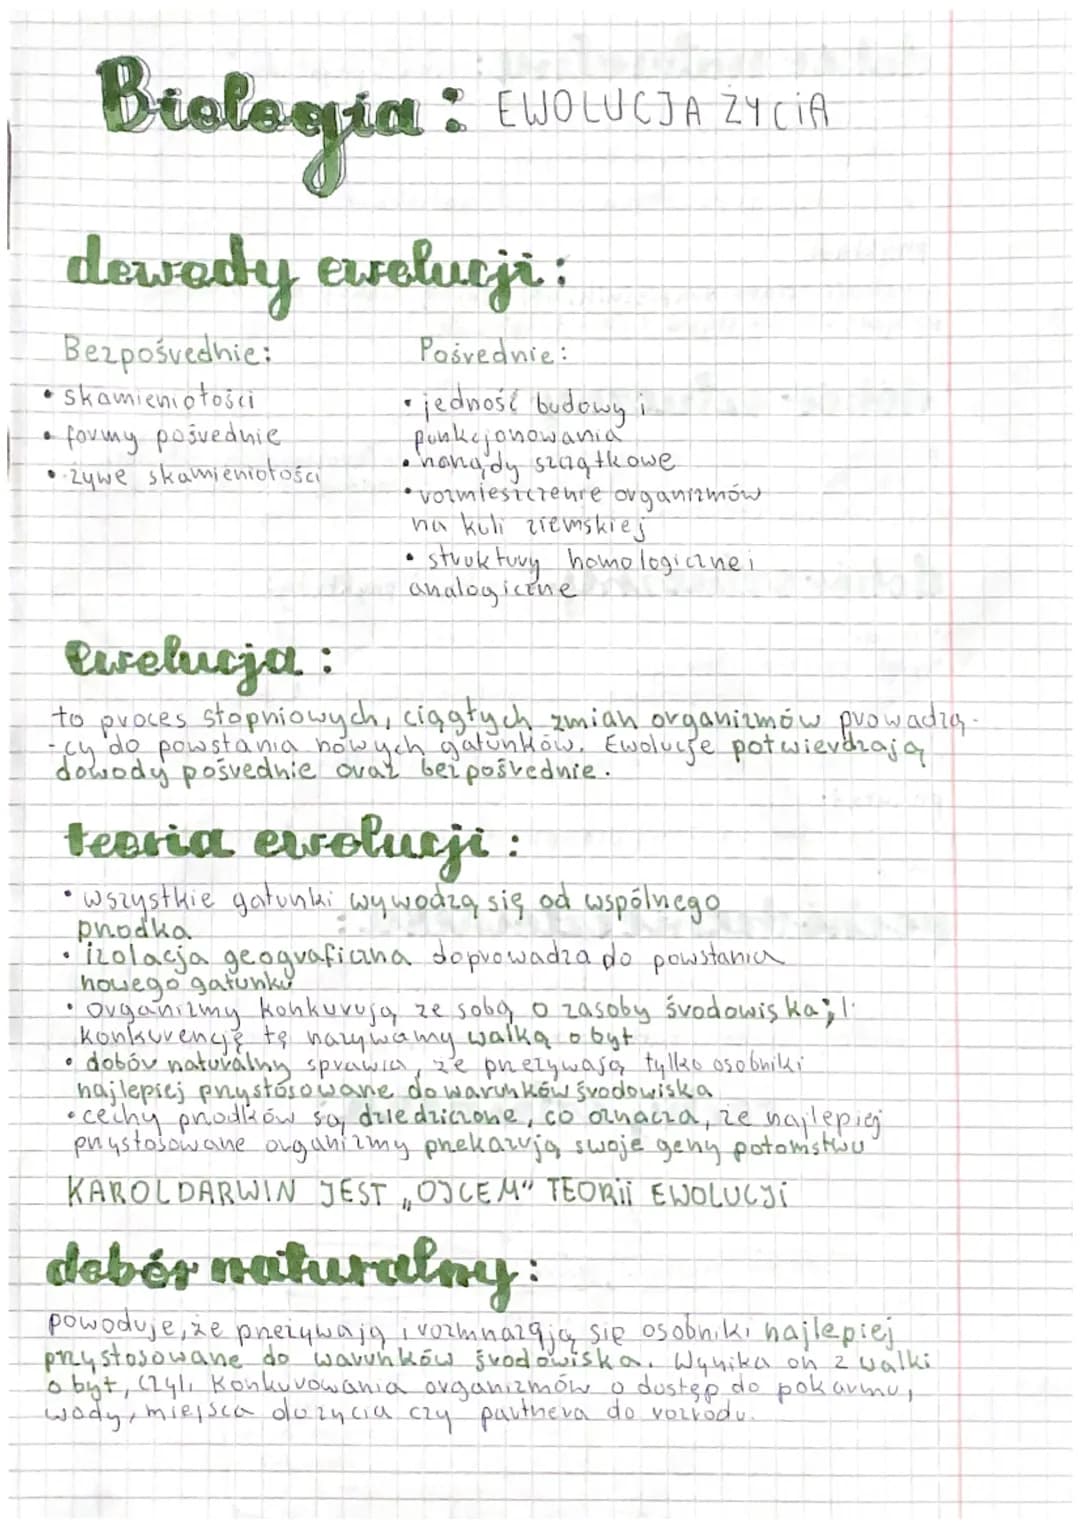 Biologia: EWOLUCJA ŻYCIA
dowody ewolucji:
Bezpośrednie:
• skamieniałości
• formy pośrednie
• żywe skamieniałości
Pośrednie:
• jedność budowy i
funkcjonowania
• narządy szczątkowe
• rozmieszczenie organizmów
na kuli ziemskiej
• struktury homologiczne i
analogiczne
ewolucja:
to proces stopniowych, ciągłych zmian organizmów prowadzą-
-cy do powstania nowych gatunków. Ewolucję potwierdzają
dowody pośrednie oraz bezpośrednie.
teoria ewolucji:
• wszystkie gatunki wywodzą się od wspólnego
przodka
• izolacja geograficzna doprowadza do powstania
nowego gatunku
• organizmy konkurują ze sobą o zasoby środowiska;
konkurencję tę nazywamy walką o byt
• dobór naturalny sprawia, że przeżywają tylko osobniki
najlepiej przystosowane do warunków środowiska
• cechy przodków są dziedziczone, co oznacza, że najlepiej
przystosowane organizmy przekazują swoje geny potomstwu
KAROL DARWIN JEST „OJCEM" TEORII EWOLUCJI
dobór naturalny:
powoduje, że przeżywają i rozmnażają się osobniki najlepiej
przystosowane do warunków środowiska. Wynika on z walki
o byt, czyli konkurowania organizmów o dostęp do pokarmu,
wody, miejsca do życia czy partnera do rozrodu.